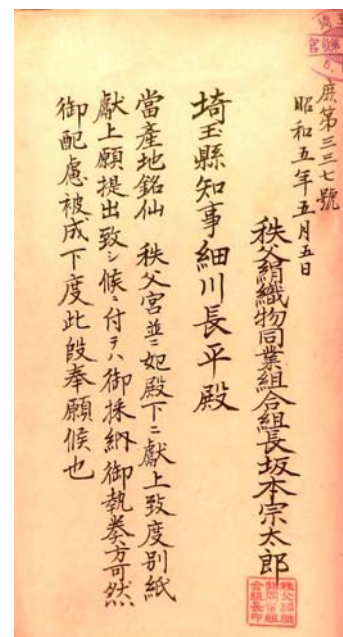 庶第三三七號
昭和五年五月五日
秩父絹織物同業組合組長坂本宗太郎
埼玉縣知事細川長平殿
當産地銘仙 秩父宮並ニ妃殿下ニ獻上致度別紙
獻上願提出致シ候ニ付テハ御採納御執奏方可然
御配慮被成下度此段奉願候也